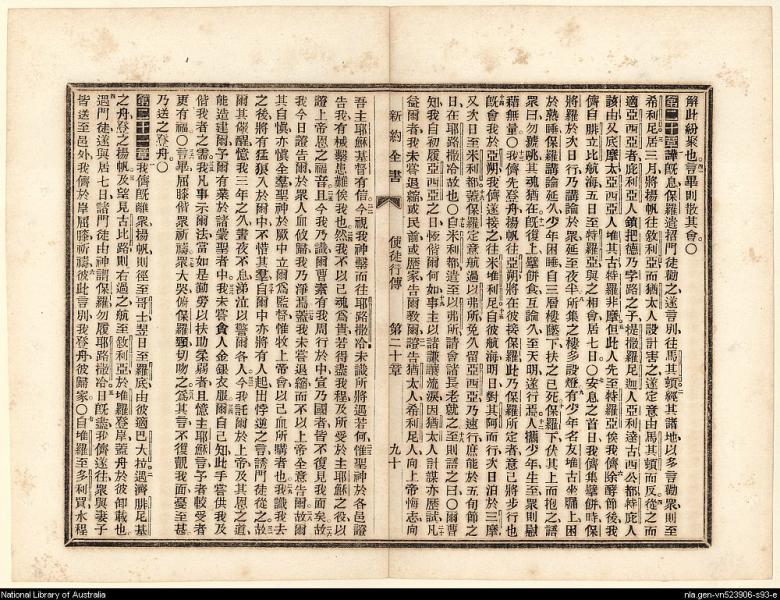 解此紛聚也言畢則散其會○
第二十章譁既息保羅遂招門徒勸之遂言別往馬其頓經其諸地以多言勸衆則至
希利尼居三月將揚帆往敘利亞而猶太人設計害之遂定意由馬其頓而反從之而
適亞西亞者庇利亞人 撒羅尼迦人亞利達古西公都特庇人
該由又底摩太亞西亞人 此人先至特羅亞俟我儕除酵節後我
儕自腓立比航海五日至特羅亞與之相會居七日○安息之首日我儕集擘餅時保
將羅於次日行乃講論於衆延至夜半所集之樓多設燈有少年名友堆古坐牖上困
於熟睡保羅講論延久少年困睡自三層樓墜下扶之已死保羅下伏其上而抱之語
衆曰勿擾姚其魂猶在既復上擘餅食互論久至天明遂行焉人攜少年生至衆則慰
藉無量○我儕先登舟揚帆往亞朔將在彼接保羅此乃保羅所定者意己將步行也
既會我於亞朔我儕遂接之往米推利尼自彼航海明日對其阿而行次日泊於三摩
又次日至米利都蓋保羅定意航過以弗所免久留亞西亞乃速行庶能於五旬節之
日在耶路撒冷故也○自米利都遣至以弗所請會諸長老就之至則語之曰○爾曹
知我自初履亞西亞之日恆偕爾何如事主以諸謙讓流淚因猶太人計謀亦歷試凡
益爾者我未嘗退縮或民前或歷家告爾教爾證告猶太人希利尼人向上帝悔志向
新約全書
使徒行傳
第二十章
九十
吾主耶穌基督有信今視我神繫而往耶路撒冷未識所將遇若何惟聖神於各邑證
告我有械繫患難俟我也然我不以己魂爲貴若得盡我程及所受於主耶穌之役以
證上帝恩之福音且今我乃識爾曹素有我周行於中宣乃國者皆不復見我面矣故
我今日證告爾於衆人血攸歸我乃淨焉蓋我未嘗退縮而不以上帝全意告爾故爾
其自愼亦愼全羣聖神於厥中立爾爲監督惟牧上帝會以己血所購者也我識我去
之後將有猛狼入於爾中不惜其羣自爾中亦將有人起出悖逆之言誘門徒從之故
爾其儆醒憶我三年之久晝夜不息涕泣以警爾各人今我託爾於上帝及其恩之道
能造建爾予爾有業於諸蒙聖者中我未嘗貪人金銀衣服爾自己知此手嘗供我及
偕我者之需我凡事示爾法當如是勤勞以扶助柔弱者且憶主耶穌言予者較受者
更有福○言畢屈膝偕衆祈禱衆大哭俯保羅頸切吻之爲其言不復覩我面憂至甚
乃送之登舟○
第二十一章我儕既離衆揚帆則徑至哥士翌日至羅底由彼適巴大拉遇濟腓尼基
之舟登之揚帆及望見古比路則右過之航至敘利亞於推羅登岸蓋舟於彼卸載也
遇門徒遂與居七日諸門徒由神謂保羅勿履耶路撒冷日既盡我儕遂往衆與妻子
皆送至邑外我儕於岸屈膝祈禱彼此言別我登舟彼歸家○自推羅至多利買水程